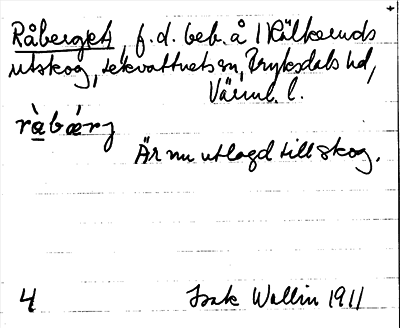 Råberget, f.d. beb. å
utskog, Lekvattnets sn, Fryksdals hd,
Värml. l.
Är nu utlagd till skog.
4
Isak Wallin 1911